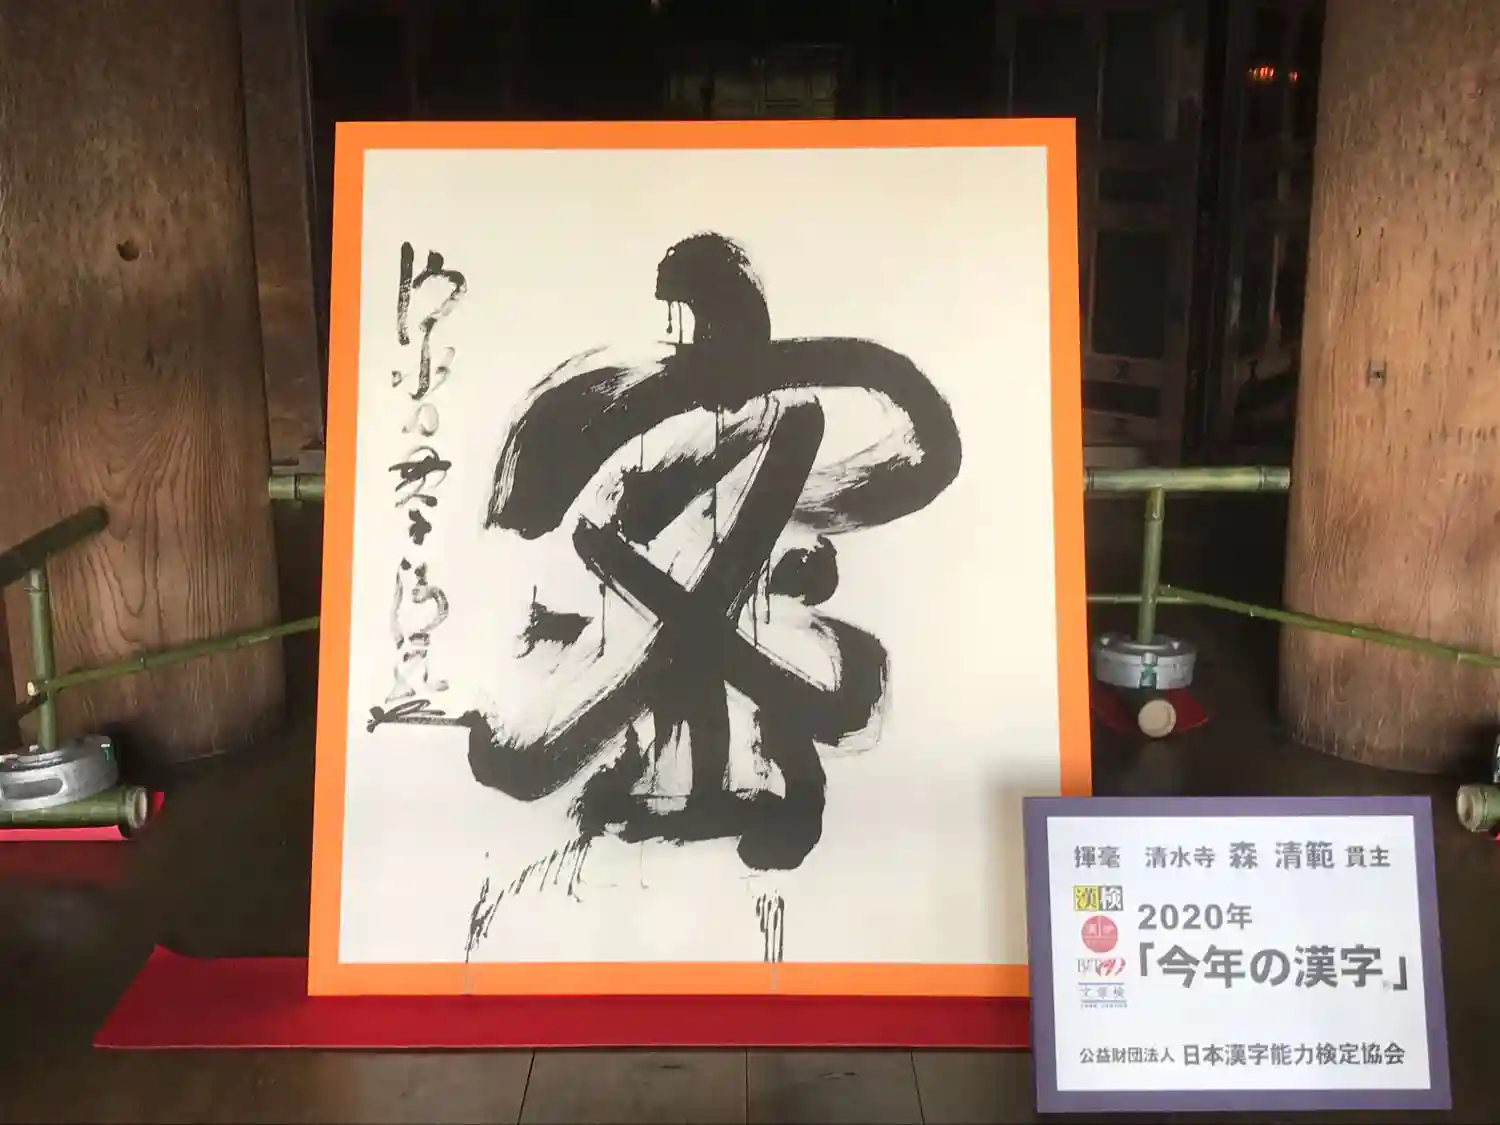 密
揮毫 清水寺 森 清範 貫主
漢検
2020年
「今年の漢字®」
文章検
公益財団法人 日本漢字能力検定協会